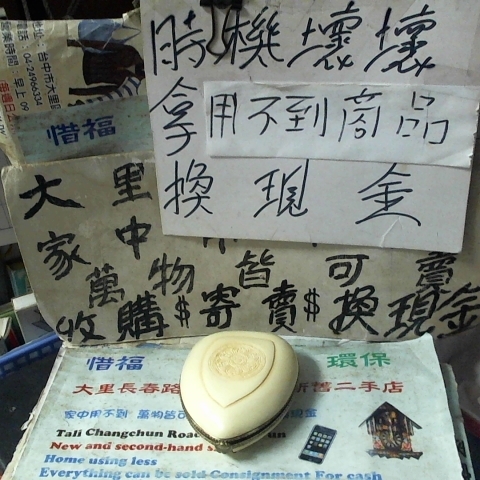 時機壞壞
拿用不到商品
換現金
地址:台中市大里
電話:04-2496634
營業時間:早上09
惜福
大里
家中
萬物皆可賣
收購$寄賣$換現金
惜福 環保
大里長春路 新舊二手店
家中用不到 萬物皆可
Tali Changchun Road
New and second-hand s
Home using less
Everything can be sold Consignment For cash